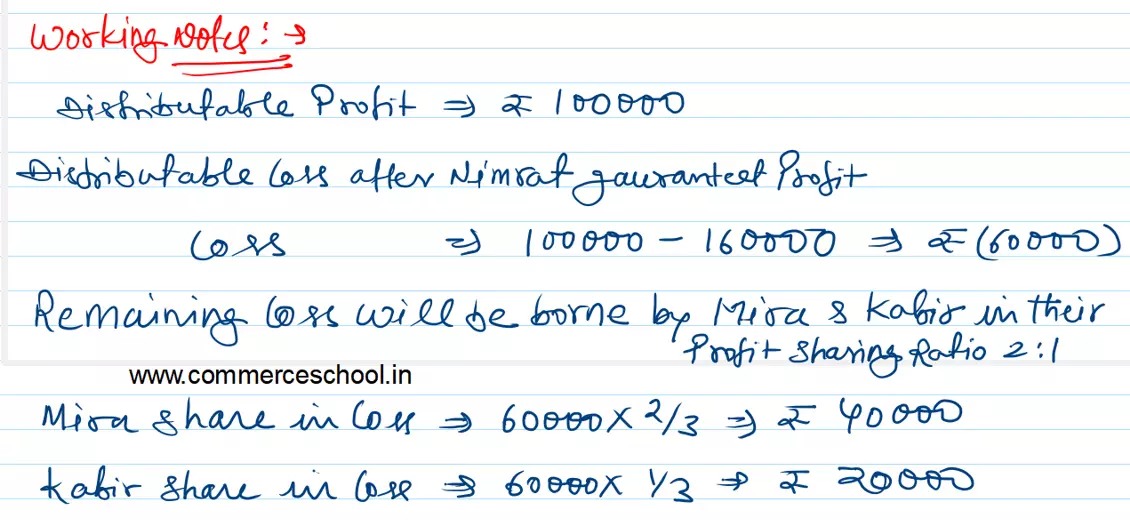 Working Notes: →
Distributable Profit ⇒ ₹ 100000
Distributable Loss after Nimrat gauranteed Profit
Loss ⇒ 100000 - 160000 ⇒ ₹ (60000)
Remaining Loss will be borne by Mira & Kabir in their
Profit Sharing Ratio 2:1
www.commerceschool.in
Mira share in Loss ⇒ 60000 X 2/3 ⇒ ₹ 40000
Kabir share in Loss ⇒ 60000 X 1/3 ⇒ ₹ 20000